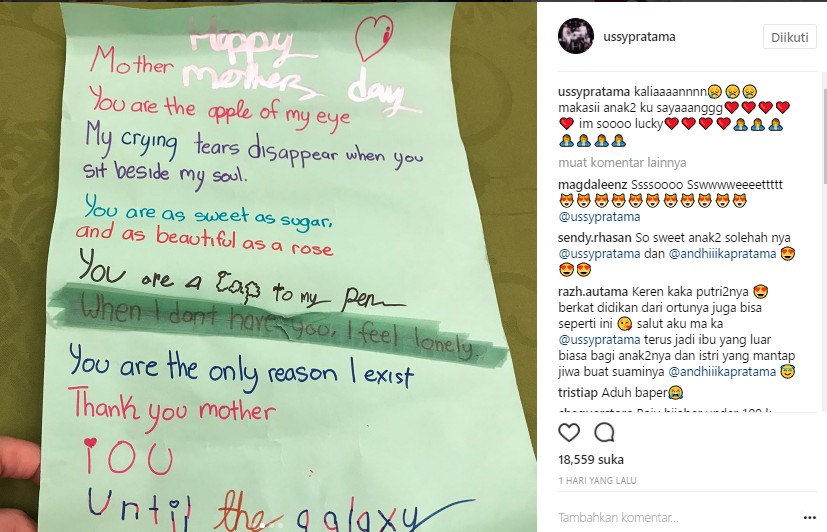 Happy
Mothers day
Mother
You are the apple of my eye
My crying tears disappear when you
sit beside my soul.
You are as sweet as sugar,
and as beautiful as a rose
You are a Cap to my pen
When I dont have you, I feel lonely.
You are the only reason I exist
Thank you mother
I O U
Until the galaxy
ussypratama
Diikuti
ussypratama kaliaaaannnn😭😭😭
makasii anak2 ku sayaaanggg❤❤❤❤
❤ im soooo lucky❤❤❤❤🤦‍♀️🤦‍♀️🤦‍♀️
🤦‍♀️🤦‍♀️🤦‍♀️🤦‍♀️
muat komentar lainnya
magdaleenz Sssssoooo Sswwwweeeettttt
😻😻😻😻😻😻😻😻😻😻
@ussypratama
sendy.rhasan So sweet anak2 solehah nya
@ussypratama dan @andhiiikapratama 😍
😍😍
razh.autama Keren kaka putri2nya 😍
berkat didikan dari ortunya juga bisa
seperti ini 😘 salut aku ma ka
@ussypratama terus jadi ibu yang luar
biasa bagi anak2nya dan istri yang mantap
jiwa buat suaminya @andhiiikapratama 😇
tristiap Aduh baper😭
18,559 suka
1 HARI YANG LALU
Tambahkan komentar...